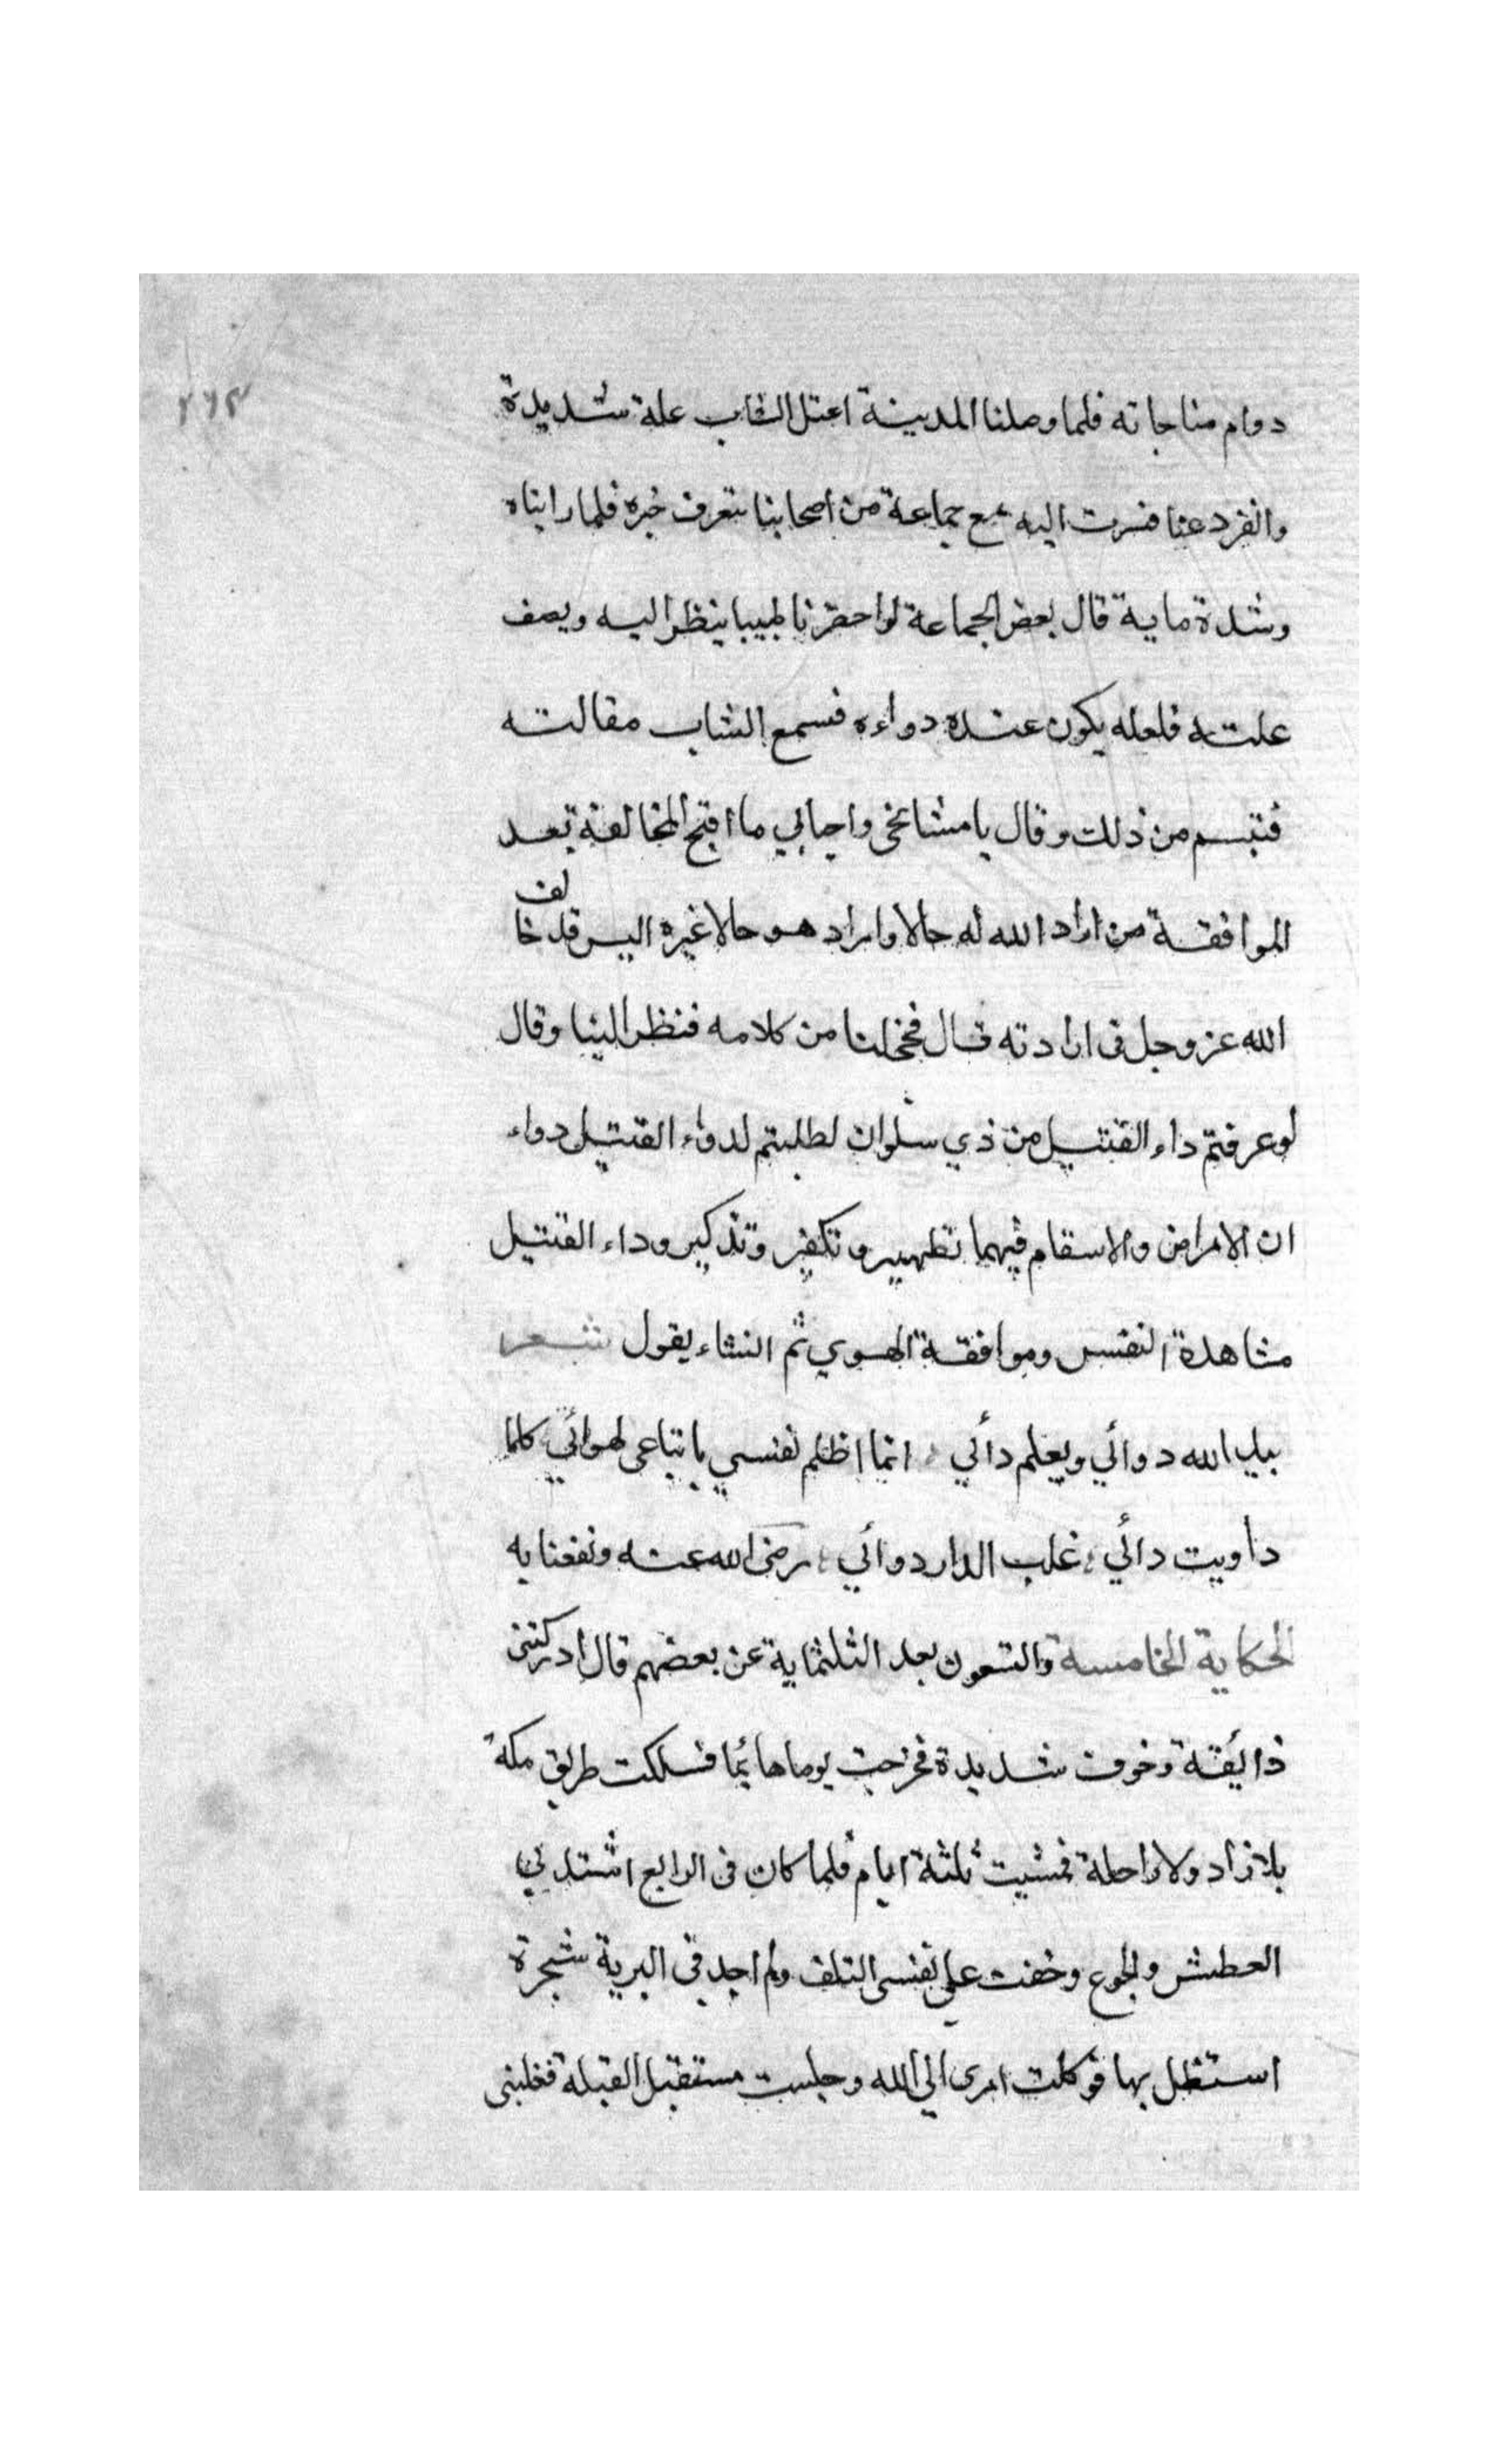 ٢٦٢
دوام مناجاته فلما وصلنا المدينة اعتل الشاب علة شديدة
وانفرد عنا فسرت اليه مع جماعة من اصحابنا نتعرف خبره فلما رايناه
وشدة مابه قال بعض الجماعة لواحضرنا طبيبا ينظر اليه ويصف
علته فلعله يكون عنده دواءه فسمع الشاب مقالته
فتبسم من ذلك وقال يا مشائخى واحبابي ما اقبح المخالفة بعد
الموافقة من اراد الله له حالا واراد هو حالا غيره اليس قد خالف
الله عزوجل فى ارادته قال فخجلنا من كلامه فنظر الينا وقال
لوعرفتم داء القتيل من ذي سلوان لطلبتم لدواء القتيل دواء
ان الامراض والاسقام فيهما تطهير وتكفير وتذكير وداء القتيل
مشاهدة النفس وموافقة الهوي ثم انشاء يقول شعر
بيد الله دوائي ويعلم دائي انما اظلم نفسي باتباعى لهوائي كلما
داويت دائي غلب الدار دوائي رضى الله عنه ونفعنا به
الحكاية الخامسة والتسعون بعد الثلثماية عن بعضهم قال ادركتنى
ذائيقة وخوف شديدة فخرجت يوما هائما فسلكت طريق مكة
بلا زاد ولا راحلة فمشيت ثلثة ايام فلما كان فى الرابع اشتد بي
العطش والجوع وخفت على نفسى التلف ولم اجد فى البرية شجرة
استظل بها فوكلت امرى الي الله وجلست مستقبل القبلة فغلبنى